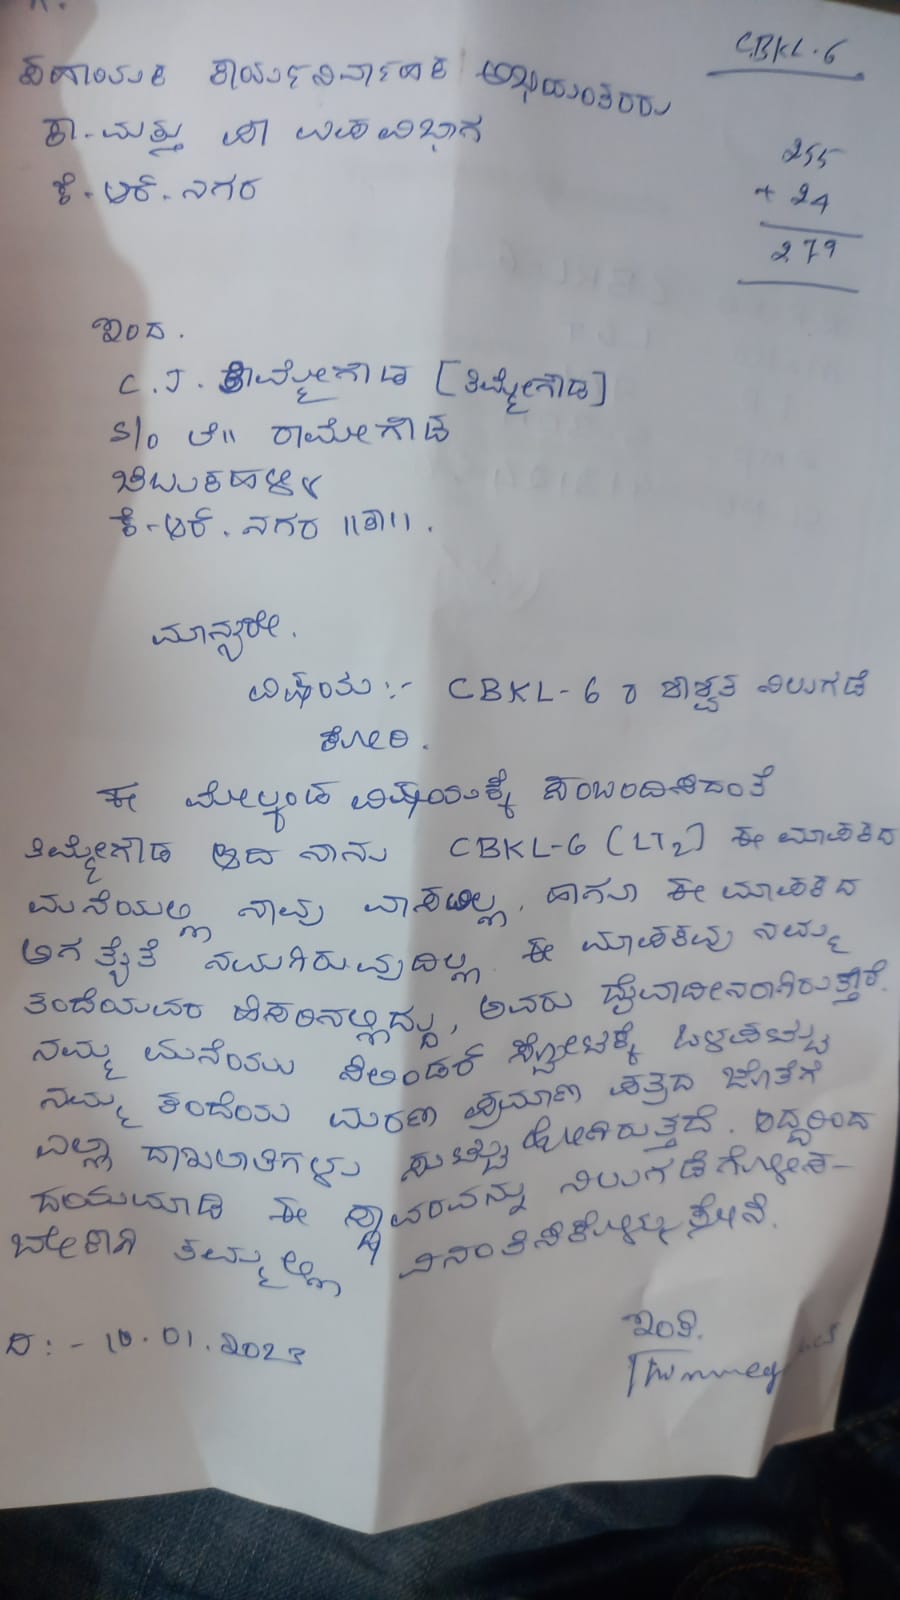 CBKL-6
ಸಹಾಯಕ ಕಾರ್ಯನಿರ್ವಾಹಕ ಅಭಿಯಂತರರು
ಕಾ. ಮತ್ತು ಪಾ ಉಪವಿಭಾಗ
ಕೆ. ಆರ್. ನಗರ
255
+ 24
279
ಇಂದ.
C.J. ತಿಮ್ಮೇಗೌಡ [ತಿಮ್ಮೇಗೌಡ]
S/o ಲೇ|| ರಾಮೇಗೌಡ
ಚಿಬುಕಹಳ್ಳಿ
ಕೆ. ಆರ್. ನಗರ ||ತಾ||.
ಮಾನ್ಯರೇ.
ವಿಷಯ:- CBKL-6 ರ ಶಾಶ್ವತ ನಿಲುಗಡೆ
ಕೋರಿ.
ಈ ಮೇಲ್ಕಂಡ ವಿಷಯಕ್ಕೆ ಸಂಬಂದಿಸಿದಂತೆ
ತಿಮ್ಮೇಗೌಡ ಆದ ನಾನು CBKL-6 (LT2) ಈ ಮಾಪಕದ
ಮನೆಯಲ್ಲಿ ನಾವು ವಾಸವಿಲ್ಲ. ಹಾಗೂ ಈ ಮಾಪಕದ
ಅಗತ್ಯತೆ ನಮಗಿರುವುದಿಲ್ಲ. ಈ ಮಾಪಕವು ನಮ್ಮ
ತಂದೆಯವರ ಹೆಸರಿನಲ್ಲಿದ್ದು, ಅವರು ದೈವಾದೀನರಾಗಿರುತ್ತಾರೆ.
ನಮ್ಮ ಮನೆಯು ಸಿಲಿಂಡರ್ ಸ್ಪೋಟಕ್ಕೆ ಒಳಪಟ್ಟು
ನಮ್ಮ ತಂದೆಯ ಮರಣ ಪ್ರಮಾಣ ಪತ್ರದ ಜೊತೆಗೆ
ಎಲ್ಲಾ ದಾಖಲಾತಿಗಳು ಸುಟ್ಟು ಹೋಗಿರುತ್ತದೆ. ಆದ್ದರಿಂದ
ದಯಮಾಡಿ ಈ ಸ್ಥಾವರವನ್ನು ನಿಲುಗಡೆಗೊಳಿಸ-
ಬೇಕಾಗಿ ತಮ್ಮಲ್ಲಿ ವಿನಂತಿಸಿಕೊಳ್ಳುತ್ತೇನೆ.
ದಿ:- 10.01.2023
ಇಂತಿ.